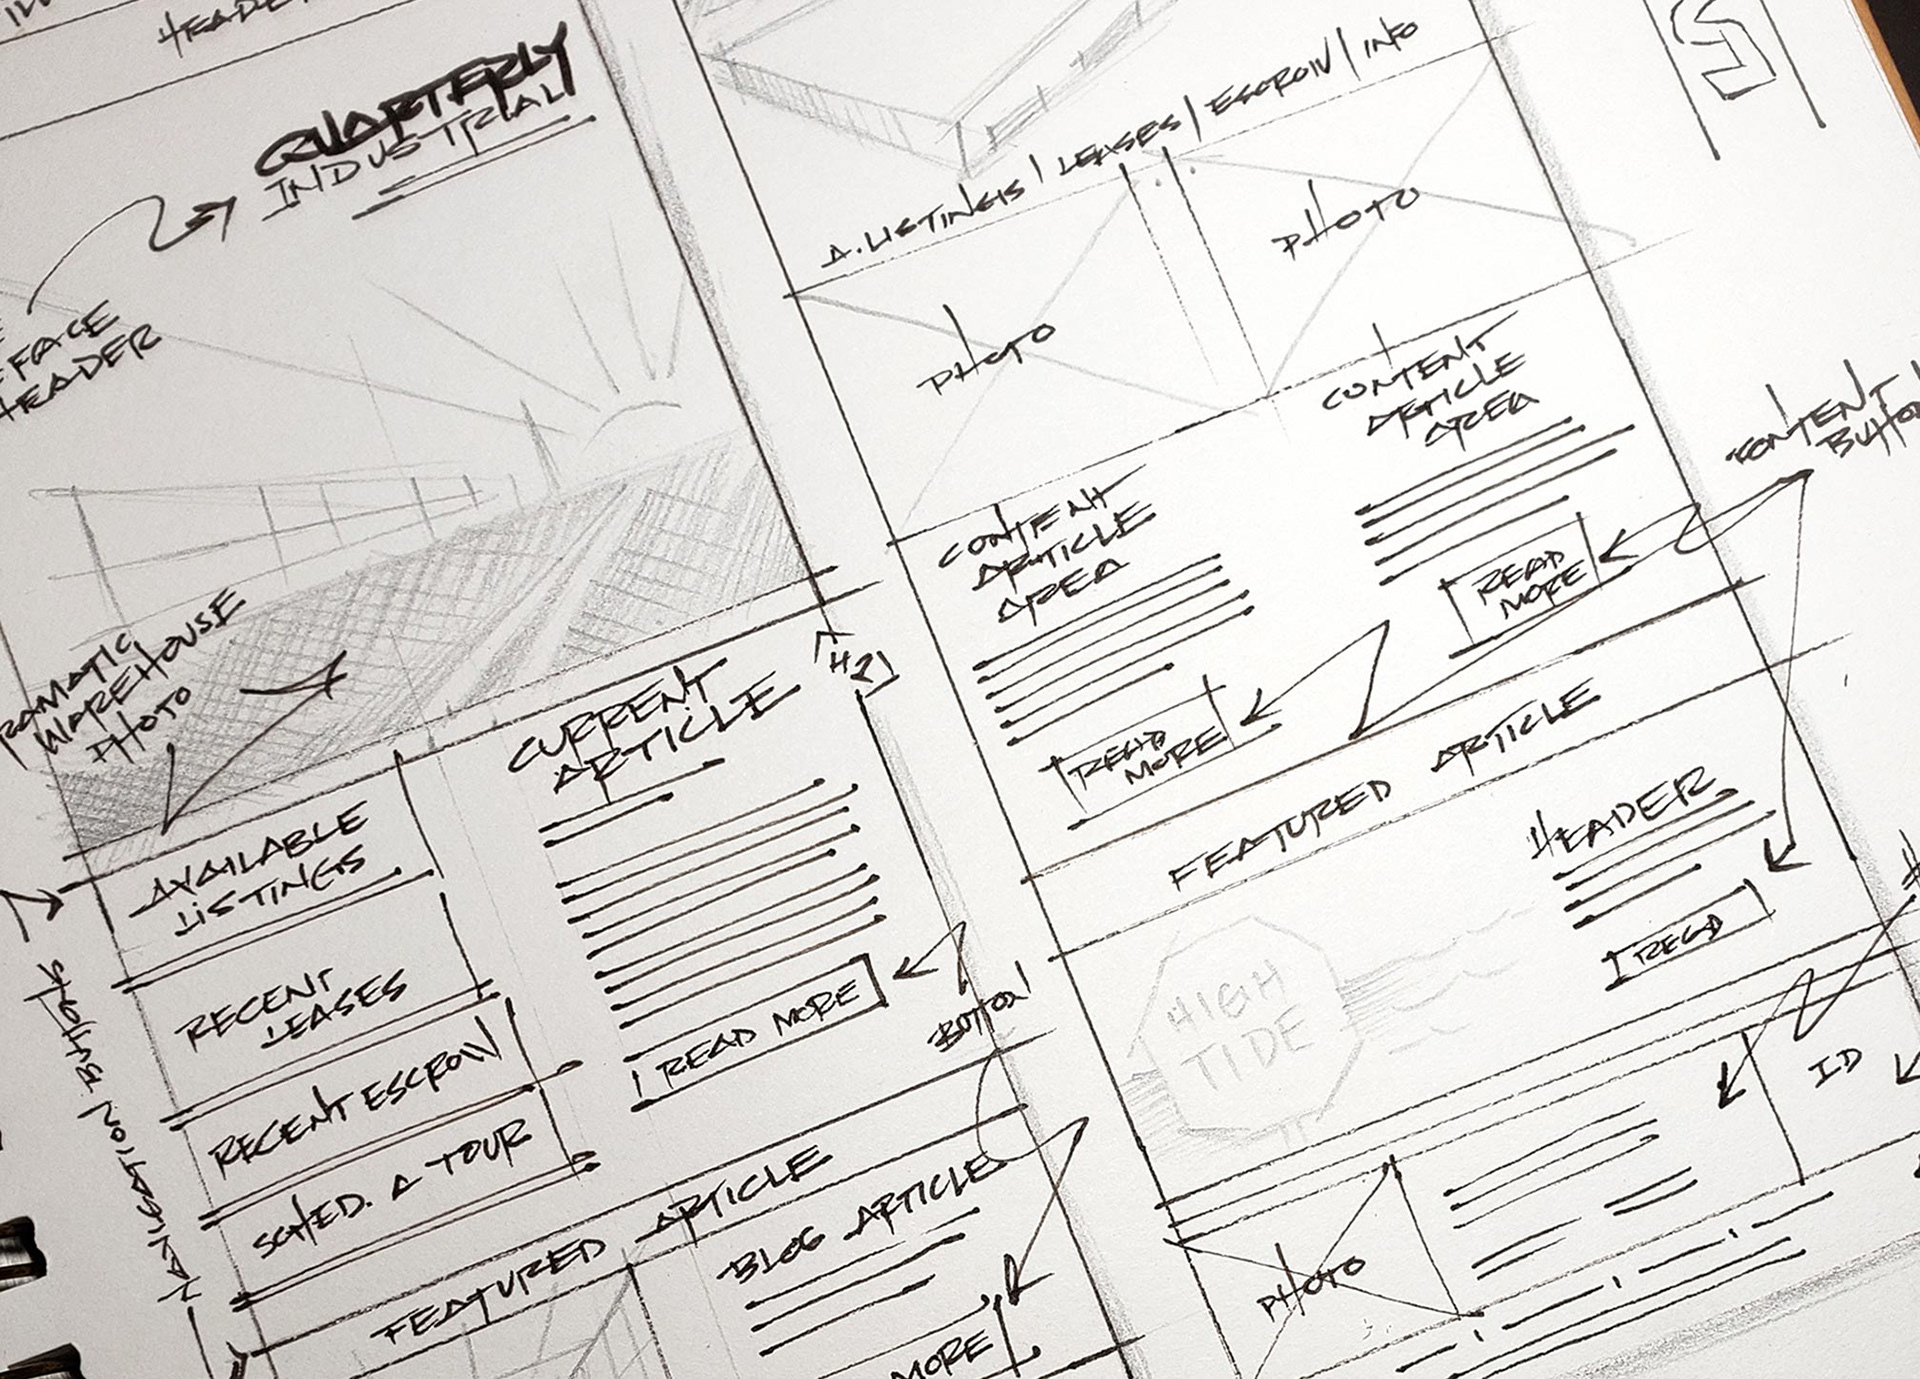 HEADER
QUARTERLY
INDUSTRIAL
FACE
HEADER
WAREHOUSE
PHOTO
AVAILABLE
LISTINGS
RECENT
LEASES
RECENT ESCROW
SCHED. A TOUR
NAVIGATION BUTTONS
CURRENT
ARTICLE
H2
READ MORE
BUTTON
FEATURED ARTICLE
BLOG ARTICLE
MORE
A. LISTINGS | LEASES | ESCROW | INFO
PHOTO
PHOTO
CONTENT
ARTICLE
AREA
READ
MORE
CONTENT
ARTICLE
AREA
READ
MORE
CONTENT
FEATURED ARTICLE
HEADER
READ
HIGH
TIDE
PHOTO
ID